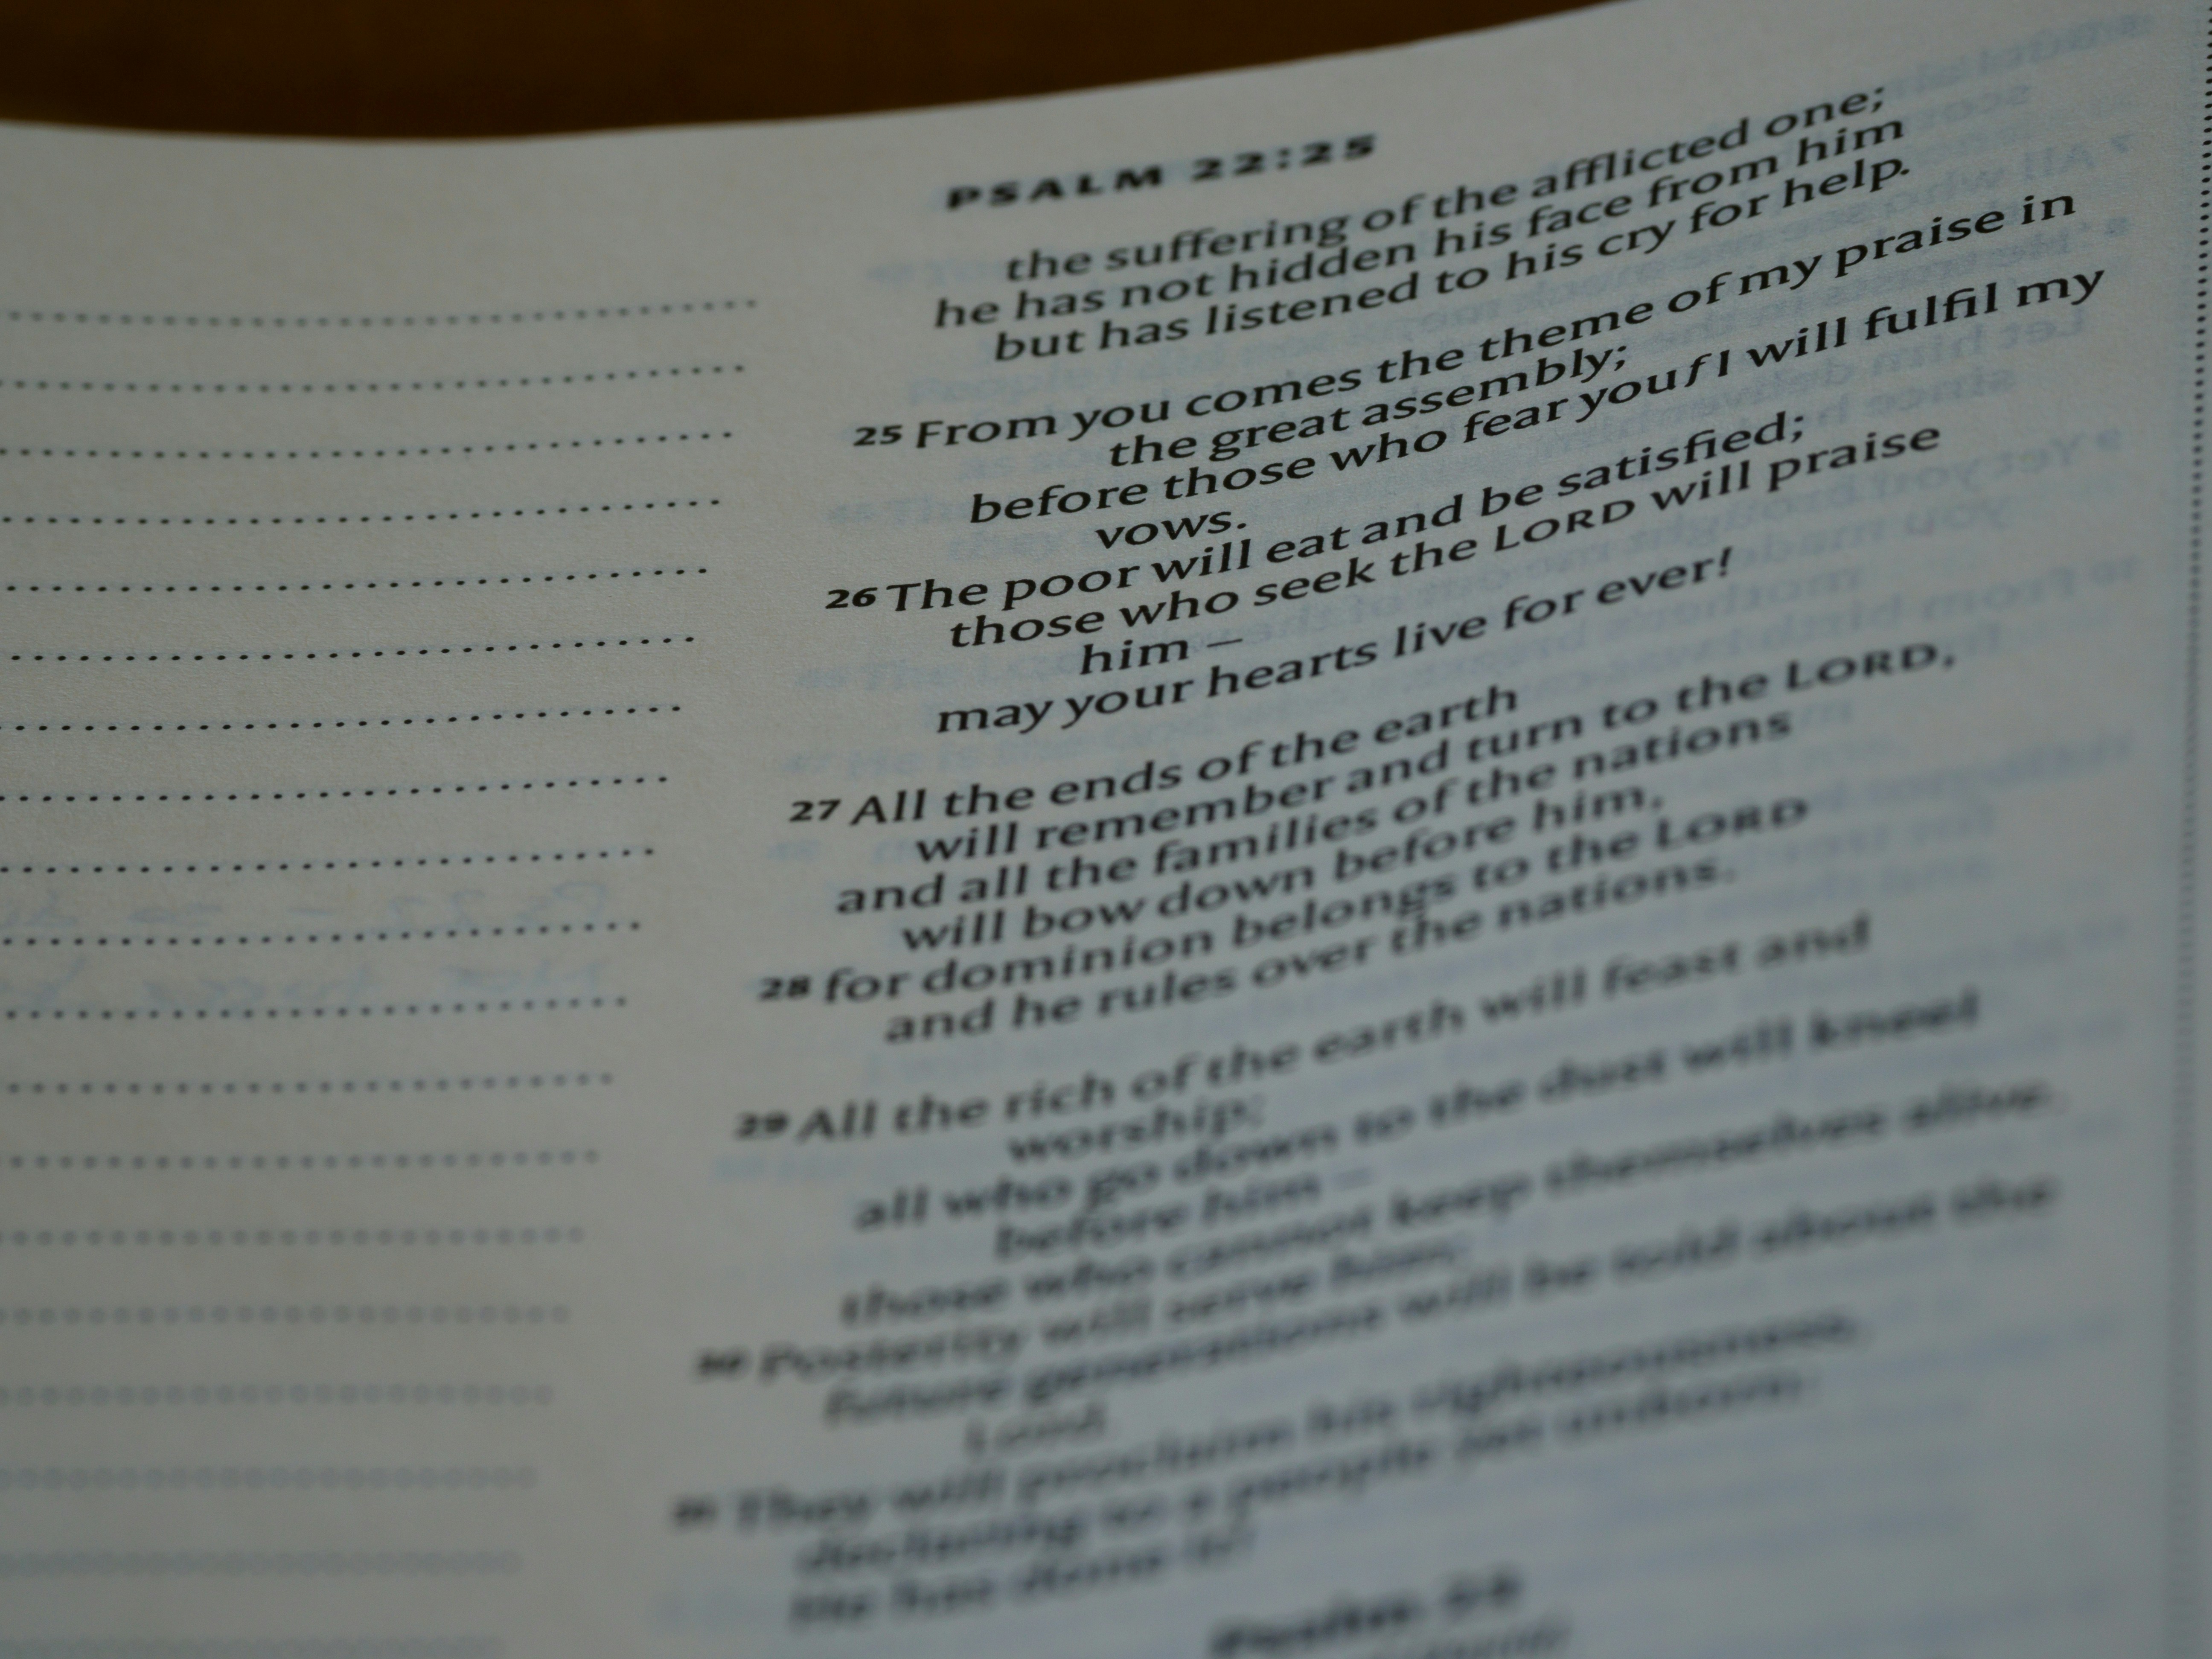 PSALM 22:25
the suffering of the afflicted one;
he has not hidden his face from him
but has listened to his cry for help.
25 From you comes the theme of my praise in
the great assembly;
before those who fear you f I will fulfil my
vows.
26 The poor will eat and be satisfied;
those who seek the LORD will praise
him –
may your hearts live for ever!
27 All the ends of the earth
will remember and turn to the LORD,
and all the families of the nations
will bow down before him,
28 for dominion belongs to the LORD
and he rules over the nations.
29 All the rich of the earth will feast and
worship;
all who go down to the dust will kneel
before him –
those who cannot keep themselves alive.
30 Posterity will serve him;
future generations will be told about the
Lord.
31 They will proclaim his righteousness,
declaring to a people yet unborn:
He has done it!
Psalm